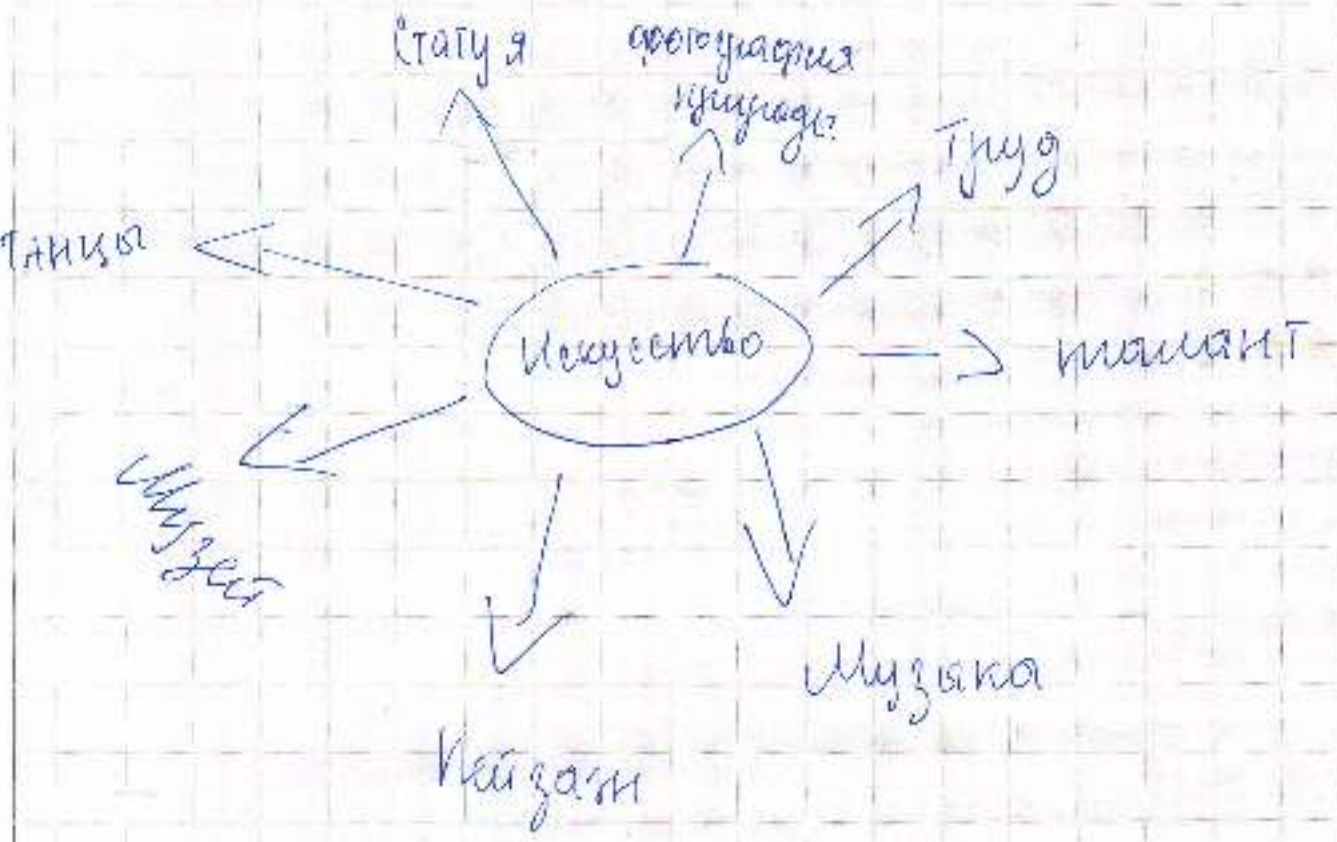 Статуя
фотография
природы
Труд
Танцы
Искусство
талант
Музей
Музыка
Пейзаж